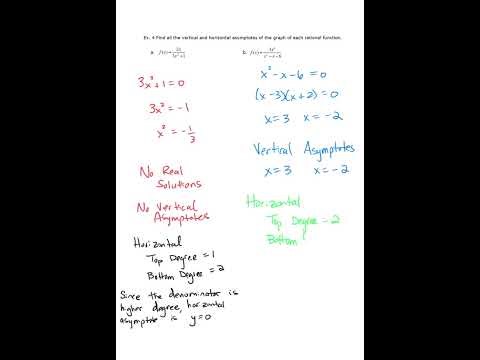 Ex. 4 Find all the vertical and horizontal asymptotes of the graph of each rational function.
a. f(x)=2x/3x²+1
3x²+1=0
3x²=-1
x²=-1/3
No Real
Solutions
No Vertical
Asymptotes
Horizontal
Top Degree=1
Bottom Degree=2
Since the denominator is
higher degree, horizontal
asymptote is y=0
b.
x²-x-6=0
(x-3)(x+2)=0
x=3 x=-2
Vertical Asymptotes
x=3 x=-2
Horizontal
Top Degree=2
Bottom